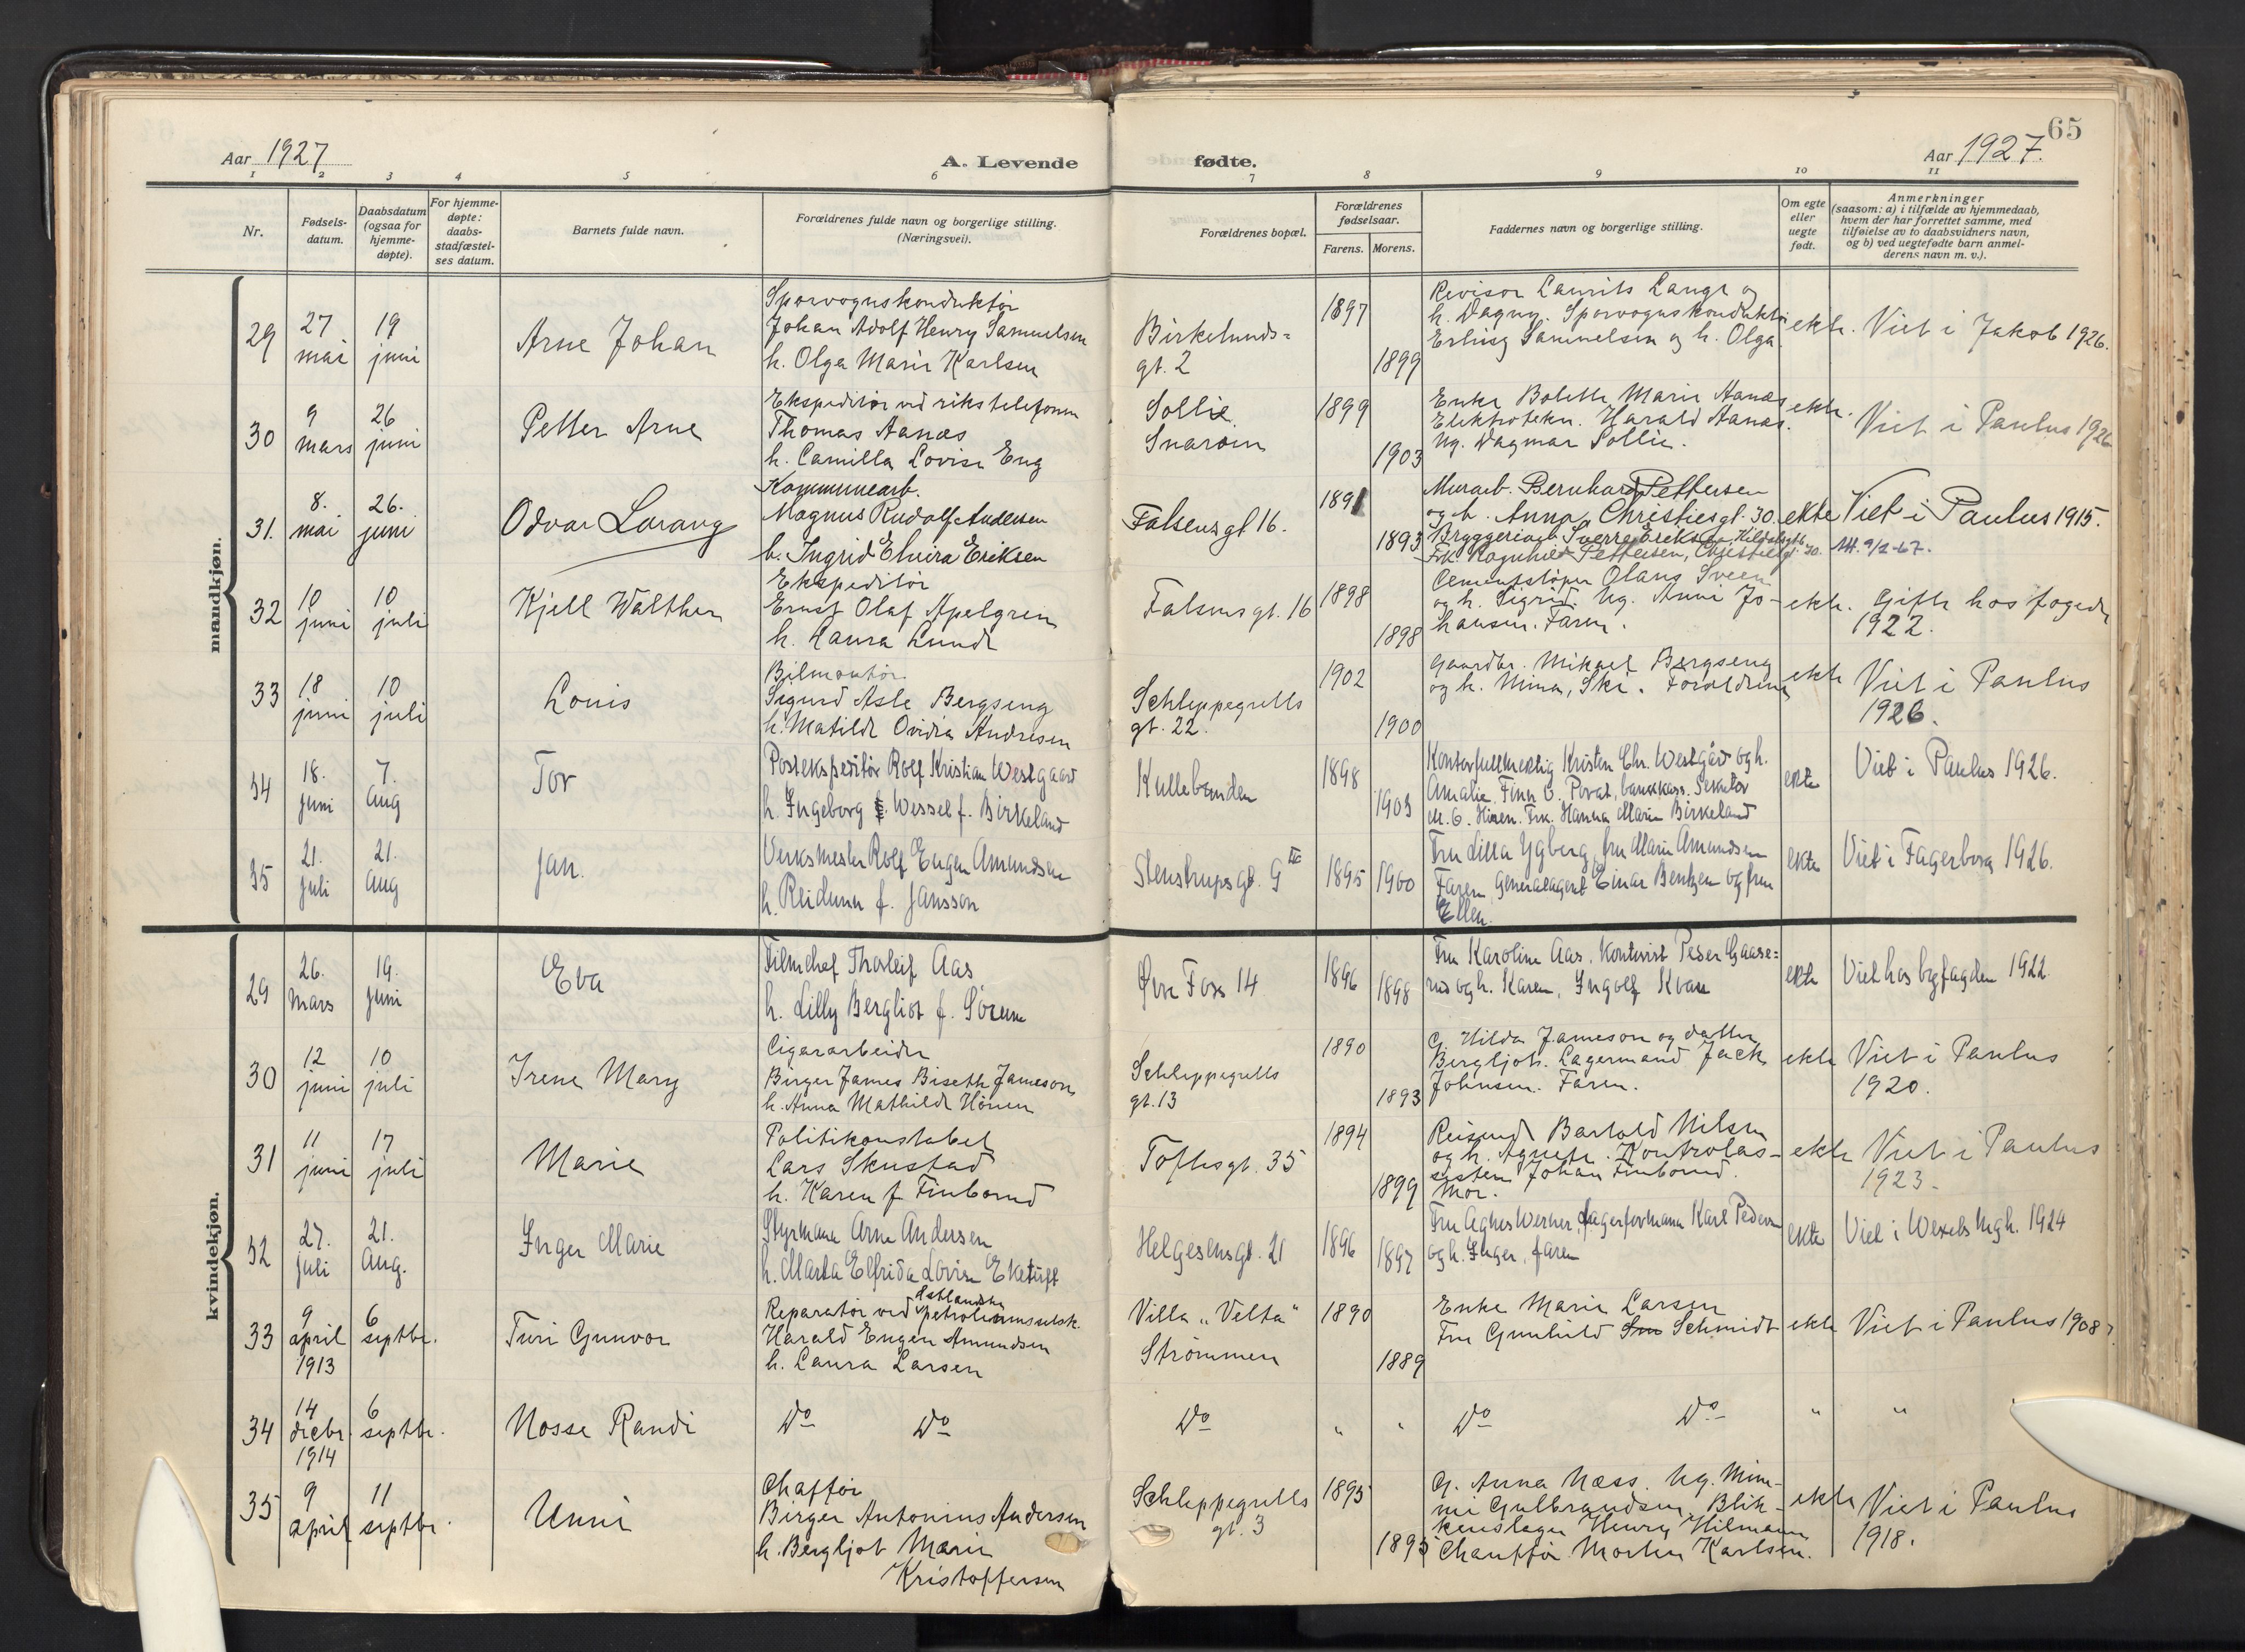 65
Aar 1927
A. Levende
fødte.
Aar 1927.
1 2 3 4 5 6 7 8 9 10 11
Nr.
Fødsels-
datum.
Daabsdatum
(ogsaa for
hjemme-
døpte).
For hjemme-
døpte:
daabs-
stadfæstel-
ses datum.
Barnets fulde navn.
Forældrenes fulde navn og borgerlige stilling.
(Næringsvei).
Forældrenes bopæl.
Forældrenes
fødselsaar.
Farens. Morens.
Faddernes navn og borgerlige stilling.
Om egte
eller
uegte
født.
Anmerkninger
(saasom: a) i tilfælde av hjemmedaab,
hvem der har forrettet samme, med
tilføielse av to daabsvidners navn,
og b) ved uegtefødte barn anmel-
derens navn m. v.).
mandkjøn.
29
27
mai
19
juni
Arne Johan
Sporvognskonduktør
Johan Adolf Henry Samuelsen
h. Olga Marie Karlsen
Birkelunds=
gt. 2
1897
1899
Revisor Laurits Lange og
h. Dagny. Sporvognskonduktør
Erling Samuelsen og h. Olga
ekte.
Viet i Jakob 1926.
30
9
mars
26
juni
Petter Arne
Ekspeditør ved rikstelefonen
Thomas Aanæs
h. Camilla Lovise Eng
Sollie
Snarøen
1899
1903
Enke Bolette Marie Aanæs
Elektrotekn. Harald Aanæs.
Ug. Dagmar Sollie.
ekte.
Viet i Paulus 1926
31.
8.
mai
26.
juni
Odvar Lorang
Kommunearb.
Magnus Rudolf Andersen
h. Ingrid Elvira Eriksen
Falsensgt 16.
1891
1893
Murarb. Bernhard Pettersen
og h. Anna, Christiesgt. 30.
Bryggeriarb. Sverre Eriksen,
Frk. Ragnhild Pettersen, Christiesgt. 30.
ekte
Viet i Paulus 1915.
Att. 9/2-67.
32
10
juni
10
juli
Kjell Walther
Ekspeditør
Ernst Olaf Apelgren
h. Laura Lunde
Falsensgt. 16
1898
1898
Cementstøper Olaus Sveen
og h. Sigrid. Ug. Anni Jo-
hansen. Faren.
ekte.
Gifte hos fogden
1922.
33
18
juni
10
juli
Louis
Bilmontør
Sigurd Asle Bergseng
h. Matilde Ovidia Andresen
Schleppegrells
gt. 22.
1902
1900
Gaardbr. Mikael Bergseng
og h. Mina, Ski. Forældrene
ekte
Viet i Paulus
1926.
34
18.
juni
7.
Aug
Tor
Postekspeditør Rolf Kristian Westgaard
h. Ingeborg Wessel f. Birkeland
Kullebunden
1898
1903
Kontorfullmektig Kristen Chr. Westgård og h.
Amalie. Finn
Frk. Hanna Marie Birkeland
ekte
Viet i Paulus 1926.
35
21.
juli
21.
Aug
Jan.
Verksmester Rolf Eugen Amundsen
h. Reidunn f. Jansson
Stenstrupsgt. 9
1895
1900
Fru Lilla Ygberg, fru Marie Amundsen
Faren, Generalagent Einar Bentzen og fru
Ellen.
ekte
Viet i Fagerborg 1926.
kvindekjøn.
29
26.
Mars
19.
juni
Eva
Filmchef Thorleif Aas
h. Lilly Bergliot f. Sørum
Øvre Foss 14
1896
1898
Fru Karoline Aas. Kontorist Peder Gaase=
rud og h. Karen, Ingolf Kvan
ekte
Viet hos byfogden 1922.
30
12
juni
10
juli
Irene Mary
Cigararbeider
Birger James Biseth Jameson
h. Anna Mathilde Hönen
Schleppegrells
gt. 13
1890
1893
G. Hilda Jameson og datter
Bergljot. Lagermand Jack
Johnsen. Faren.
ekte
Viet i Paulus
1920.
31
11
juni
17
juli
Marie
Politikonstabel
Lars Skustad
h. Karen f. Finborud
Toftesgt. 35
1894
1899
Reisende Bartold Nilsen
og h. Agnete. Kontrolas-
sistent Johan Finborud.
Mor.
ekte
Viet i Paulus
1923.
32
27.
juli
21.
Aug.
Inger Marie
Styrmann Arne Andersen
h. Marta Elfrida Lovise Eketuft
Helgesensgt. 21
1896
1897
Fru Agnes Werner, Lagerformann Karl Pedersen
og h. Inger, faren
ekte
Viet i Wexels Mgh. 1924
33
9
april
1913
6
septbr.
Turi Gunvor
Reparatør ved Østlandske petroleumsselsk.
Harald Eugen Amundsen
h. Laura Larsen
Villa „Velta"
Strømmen
1890
1889
Enke Marie Larsen
Fru Gunhild Schmidt
ekte
Viet i Paulus 1908
34
14
decbr.
1914
6
septbr.
Nosse Randi
Do Do
Do
" "
Do Do
"
"
35
9
april
11
septbr.
Unni
Chaffør
Birger Antonius Andersen
h. Bergljot Marie
Kristoffersen
Schleppegrells
gt. 3
1895
1895
G. Anna Næss. Ug. Mim-
mi Gulbrandsen, Blik-
kenslager Henry Hilmann
Chauffør Morten Karlsen.
ekte
Viet i Paulus
1918.